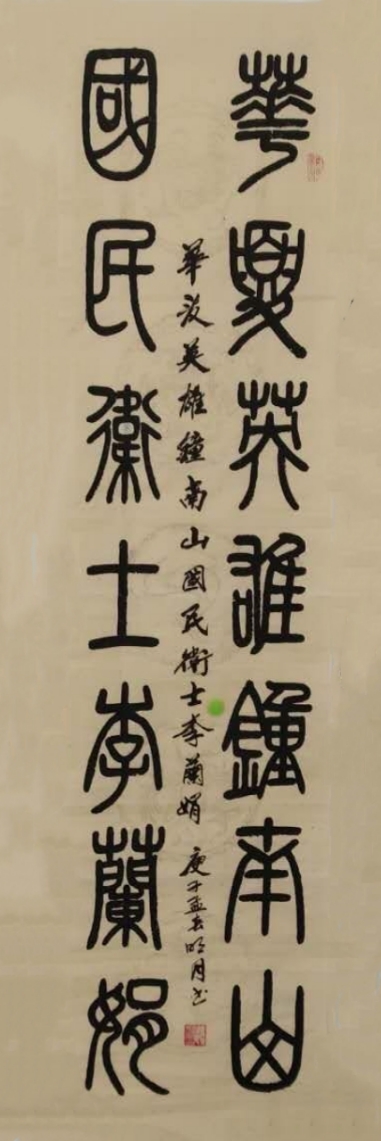 華夏英雄鐘南山
國民衛士李蘭娟
華夏英雄鐘南山國民衛士李蘭娟
庚子孟春明月书